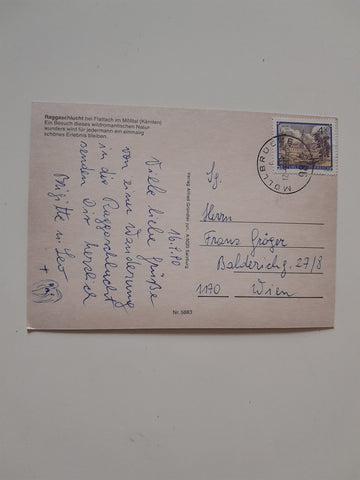 Raggaschlucht bei Flattach im Mölltal (Kärnten)
Ein Besuch dieses wildromantischen Natur-
wunders wird für jedermann ein einmalig
schönes Erlebnis bleiben.
16.7.90
Viele liebe Grüße
von einer Wanderung
in die Raggaschlucht
senden Dir herzlich
Brigitte u. Leo
+
Nr. 5883
MÖLLBRÜCKE
Sg.
Herrn
Franz Gröger
Balderichg. 27/8
1170 Wien